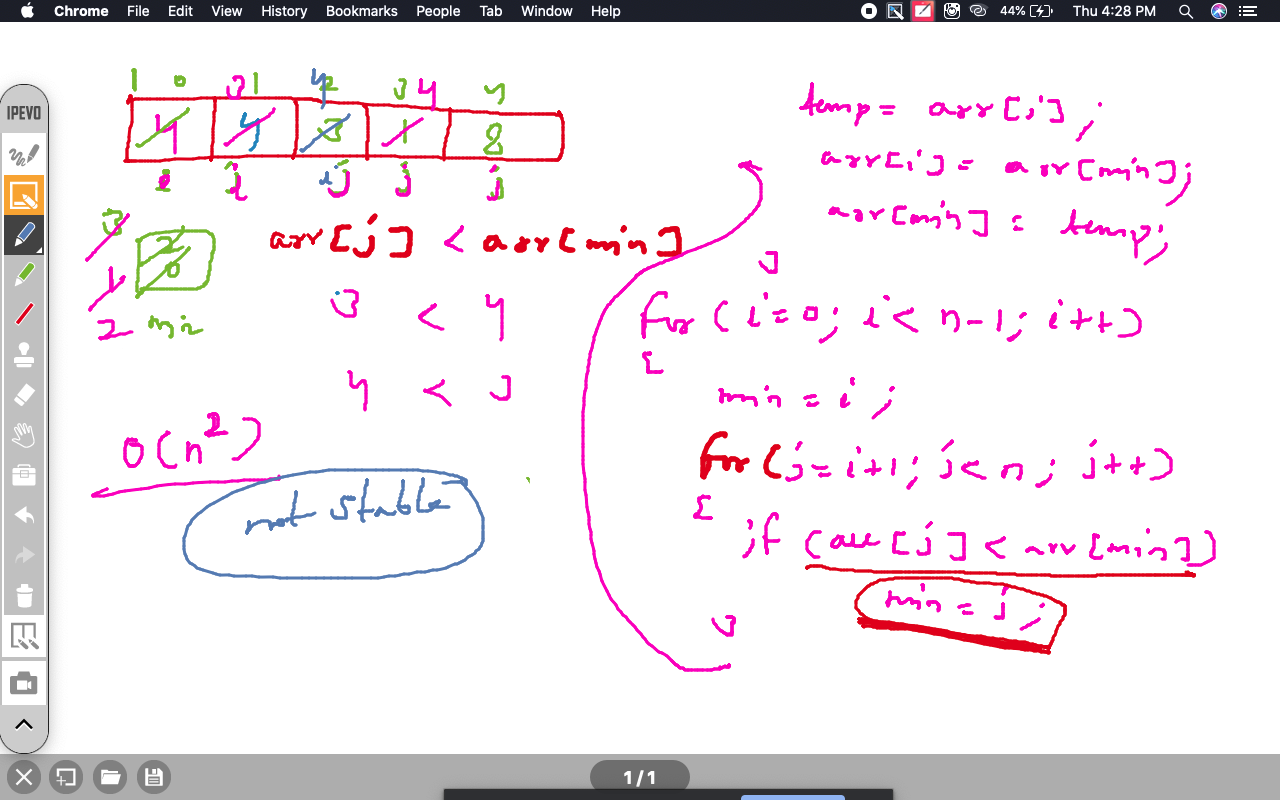 Chrome File Edit View History Bookmarks People Tab Window Help 44% Thu 4:28 PM
IPEVO
1 0 3 1 4 2 3 4 4
4 4 3 1 8
i i i j j j
3
2
0
1
2 min
arr[j] < arr[min]
3 < 4
4 < 3
O(n²)
not stable
temp = arr[i];
arr[i] = arr[min];
arr[min] = temp;
}
for (i=0; i< n-1; i++)
{
min = i;
for (j=i+1; j<n; j++)
{
if (arr[j] < arr[min])
min = j;
}
1/1